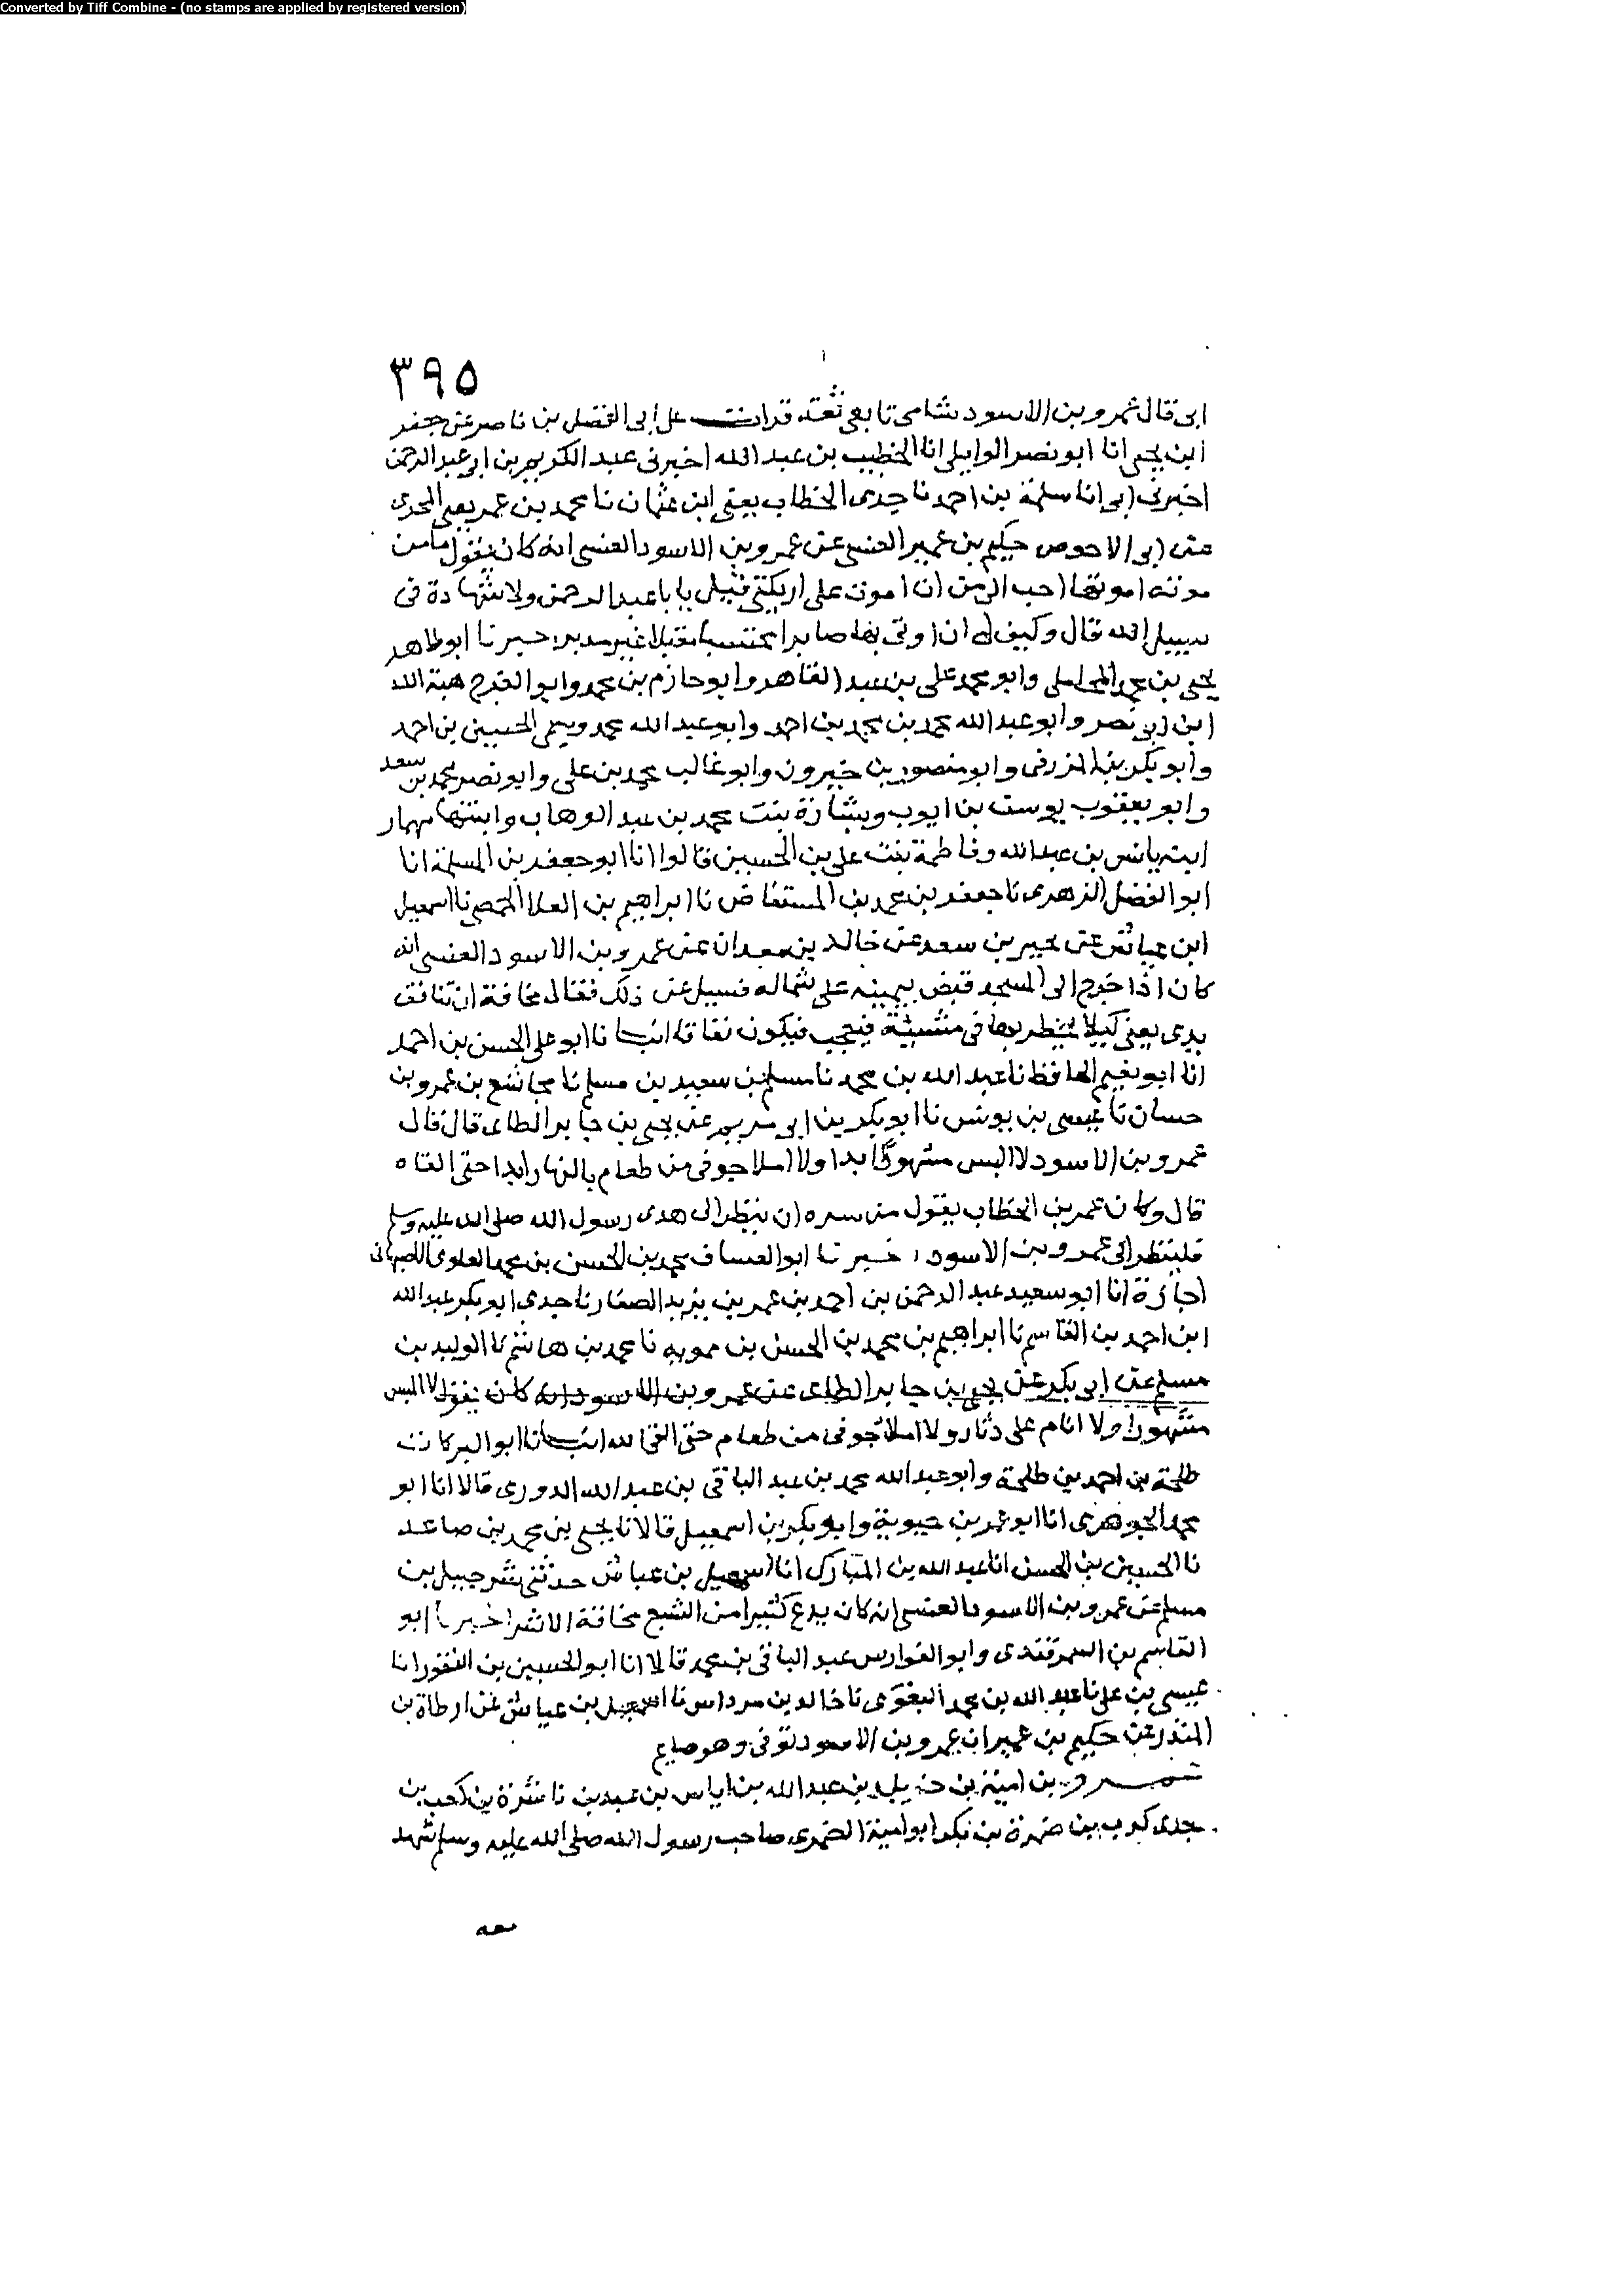 Converted by Tiff Combine - (no stamps are applied by registered version)
٣٩٥
ابى قال عمرو بن الاسود شامى تابعى ثقة قرات على ابى الفضل بن ناصر عن جعفر
ابن يحيى انا ابو نصر الوايلى انا الخطيب بن عبد الله اخبرنى عبد الكريم بن ابى عبد الرحمن
اخبرنى ابى انا سلمة بن احمد نا جدى الخطاب يعنى ابن عثمان نا محمد بن عمر يعنى المحرى
عن ابى الاحوص حكيم بن عمير العنسى عن عمرو بن الاسود العنسى انه كان يقول ما من
موتة اموتها احب الى من ان اموت على اريكتى فقيل يا با عبد الرحمن ولا شهادة فى
سبيل الله قال وكيف لى ان اوتى بها صابرا محتسبا مقبلا غير مدبر اخبرنا ابو طاهر
يحيى بن محمد المحاملى وابو محمد على بن عبد القاهر وابو حازم بن محمد وابو الفرج هبة الله
ابن ابى نصر وابو عبد الله محمد بن محمد بن احمد وابو عبد الله محمد ويسمى الحسين بن احمد
وابو بكر بن المزرفى وابو منصور بن خيرون وابو غالب محمد بن على وابو نصر محمد بن سعد
وابو يعقوب يوسف بن ايوب وبشارة بنت محمد بن عبد الوهاب وابنتها مهمار
ابنه يانس بن عبد الله وفاطمة بنت على بن الحسين قالوا انا ابو جعفر بن المسلمة انا
ابو الفضل الزهرى نا جعفر بن محمد بن المستفاض نا ابراهيم بن العلا الحمصى نا اسمعيل
ابن عياش عن بحير بن سعد عن خالد بن معدان عن عمرو بن الاسود العنسى انه
كان اذا خرج الى المسجد قبض بيمينه على شماله فسيل عن ذلك فقال مخافة ان تنافق
يدى يعنى كيلا يخطر بها فى مشيته فيعجب فيكون نفاقا انبانا ابو على الحسن بن احمد
انا ابو نعيم الحافظ نا عبد الله بن محمد نا مسلم بن سعيد بن مسلم نا مجاشع بن عمرو بن
حسان نا عيسى بن يونس نا ابو بكر بن ابى مريم عن يحيى بن جابر الطاى قال قال
عمرو بن الاسود لا البس مشهورا ابدا ولا املا جوفى من طعام بالنهار ابدا حتى القاه
قال وكان عمر بن الخطاب يقول من سره ان ينظر الى هدى رسول الله صلى الله عليه وسلم
فلينظر الى عمرو بن الاسود اخبرنا ابو العساف محمد بن الحسن بن محمد العلوى الاصبهانى
اجازة انا ابو سعيد عبد الرحمن بن احمد بن عمر بن يزيد الصفار نا جدى ابو بكر عبد الله
ابن احمد بن القاسم نا ابراهيم بن محمد بن الحسن بن مموية نا محمد بن هاشم نا الوليد بن
مسلم عن ابى بكر عن يحيى بن جابر الطاى عن عمرو بن الاسود انه كان يقول لا البس
مشهورا ولا انام على دثار ولا املا جوفى من طعام حتى القى الله انبانا ابو البركات
طلحة بن احمد بن طلحة وابو عبد الله محمد بن عبد الباقى بن عبد الله الدورى قالا انا ابو
محمد الجوهرى انا ابو عمر بن حيوية وابو بكر بن اسمعيل قالا نا يحيى بن محمد بن صاعد
نا الحسين بن الحسن انا عبد الله بن المبارك انا اسمعيل بن عياش حدثنى شرحبيل بن
مسلم عن عمرو بن الاسود العنسى انه كان يدع كثيرا من الشبع مخافة الاشر اخبرنا ابو
القاسم بن السمرقندى وابو الفوارس عبد الباقى بن محمد قالا انا ابو الحسين بن النقور انا
عيسى بن على نا عبد الله بن محمد البغوى نا خالد بن مرداس نا اسمعيل بن عياش عن ارطاة بن
المنذر عن حكيم بن عمير ان عمرو بن الاسود توفى وهو صايم
عمرو بن امية بن خويلد بن عبد الله بن اياس بن عبد بن ناشرة بن كعب بن
جدى بن ضمرة بن بكر ابو امية الضمرى صاحب رسول الله صلى الله عليه وسلم شهد
معه